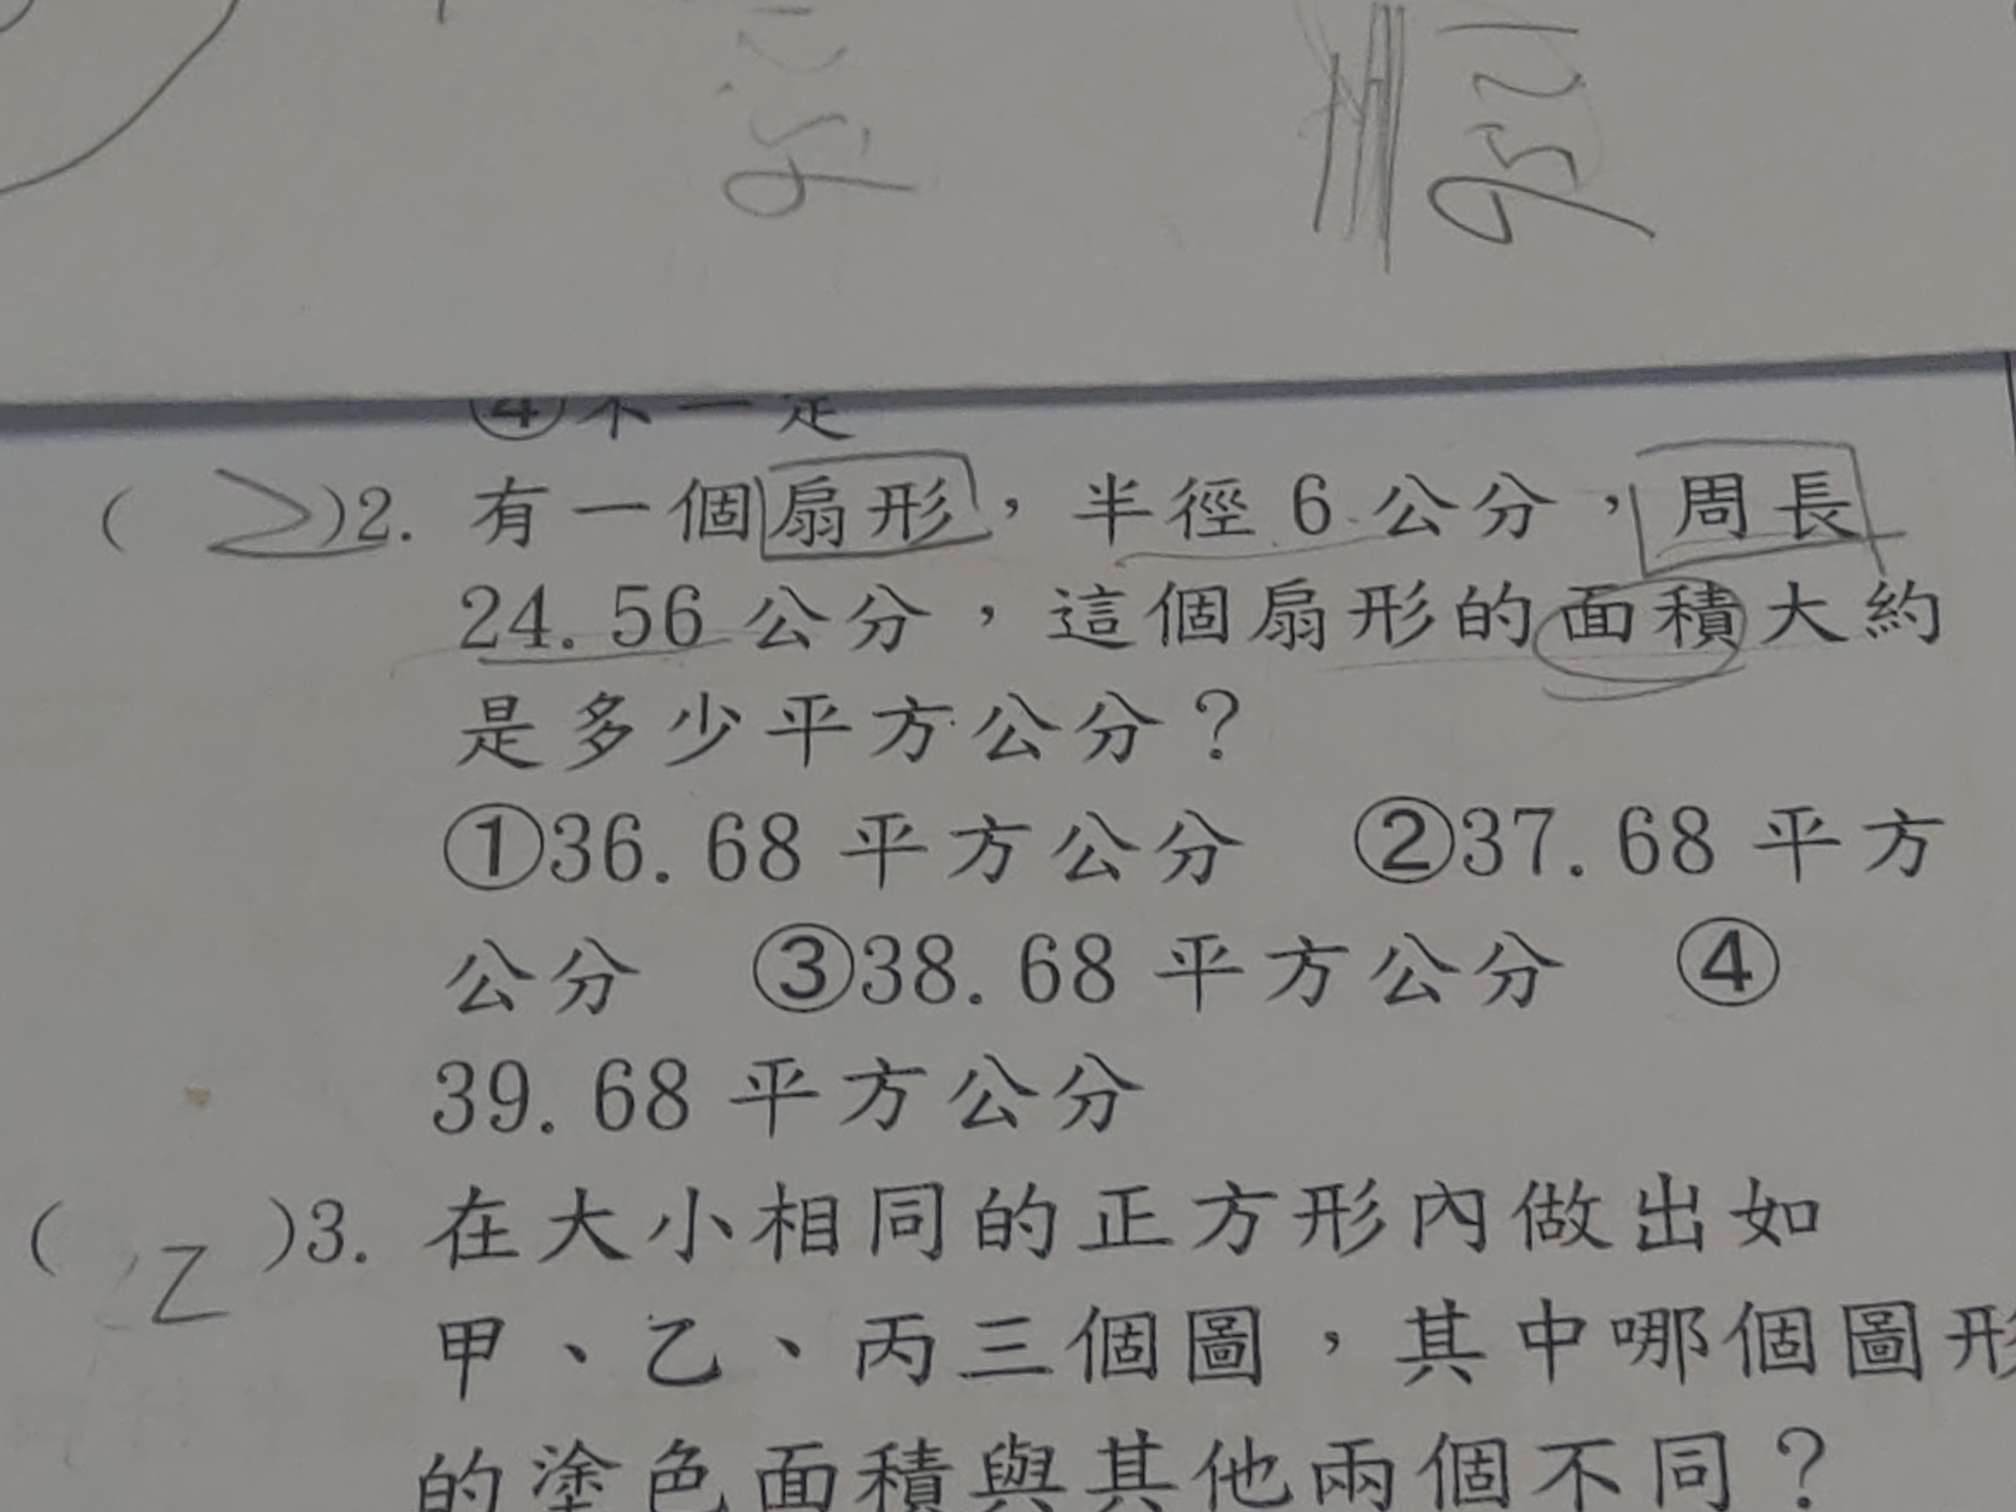 ④不一定
( 2 )2. 有一個扇形，半徑 6 公分，周長
24.56 公分，這個扇形的面積大約
是多少平方公分？
①36.68 平方公分 ②37.68 平方
公分 ③38.68 平方公分 ④
39.68 平方公分
( 2 )3. 在大小相同的正方形內做出如
甲、乙、丙三個圖，其中哪個圖形
的塗色面積與其他兩個不同？